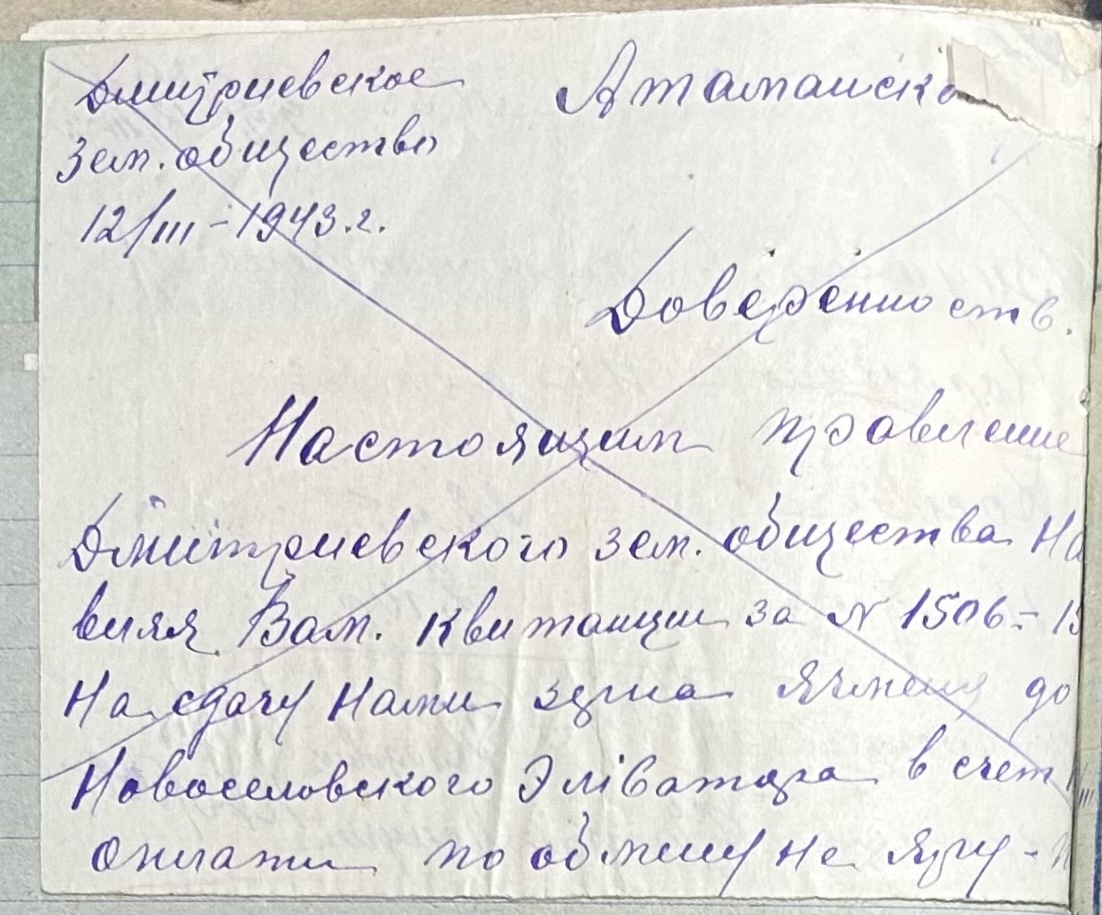 Дмитриевское Атаманско
Зем. общество
12/III-1943.г.
Доверенность.
Настоящим правление
Дмитриевского зем. общества на
вияя Вам. Квитанции за N 1506-15
На сдачу Нами зерна Ячменя до
Новоселовского Эліватора в счет
Оплати по обмену на Яру-